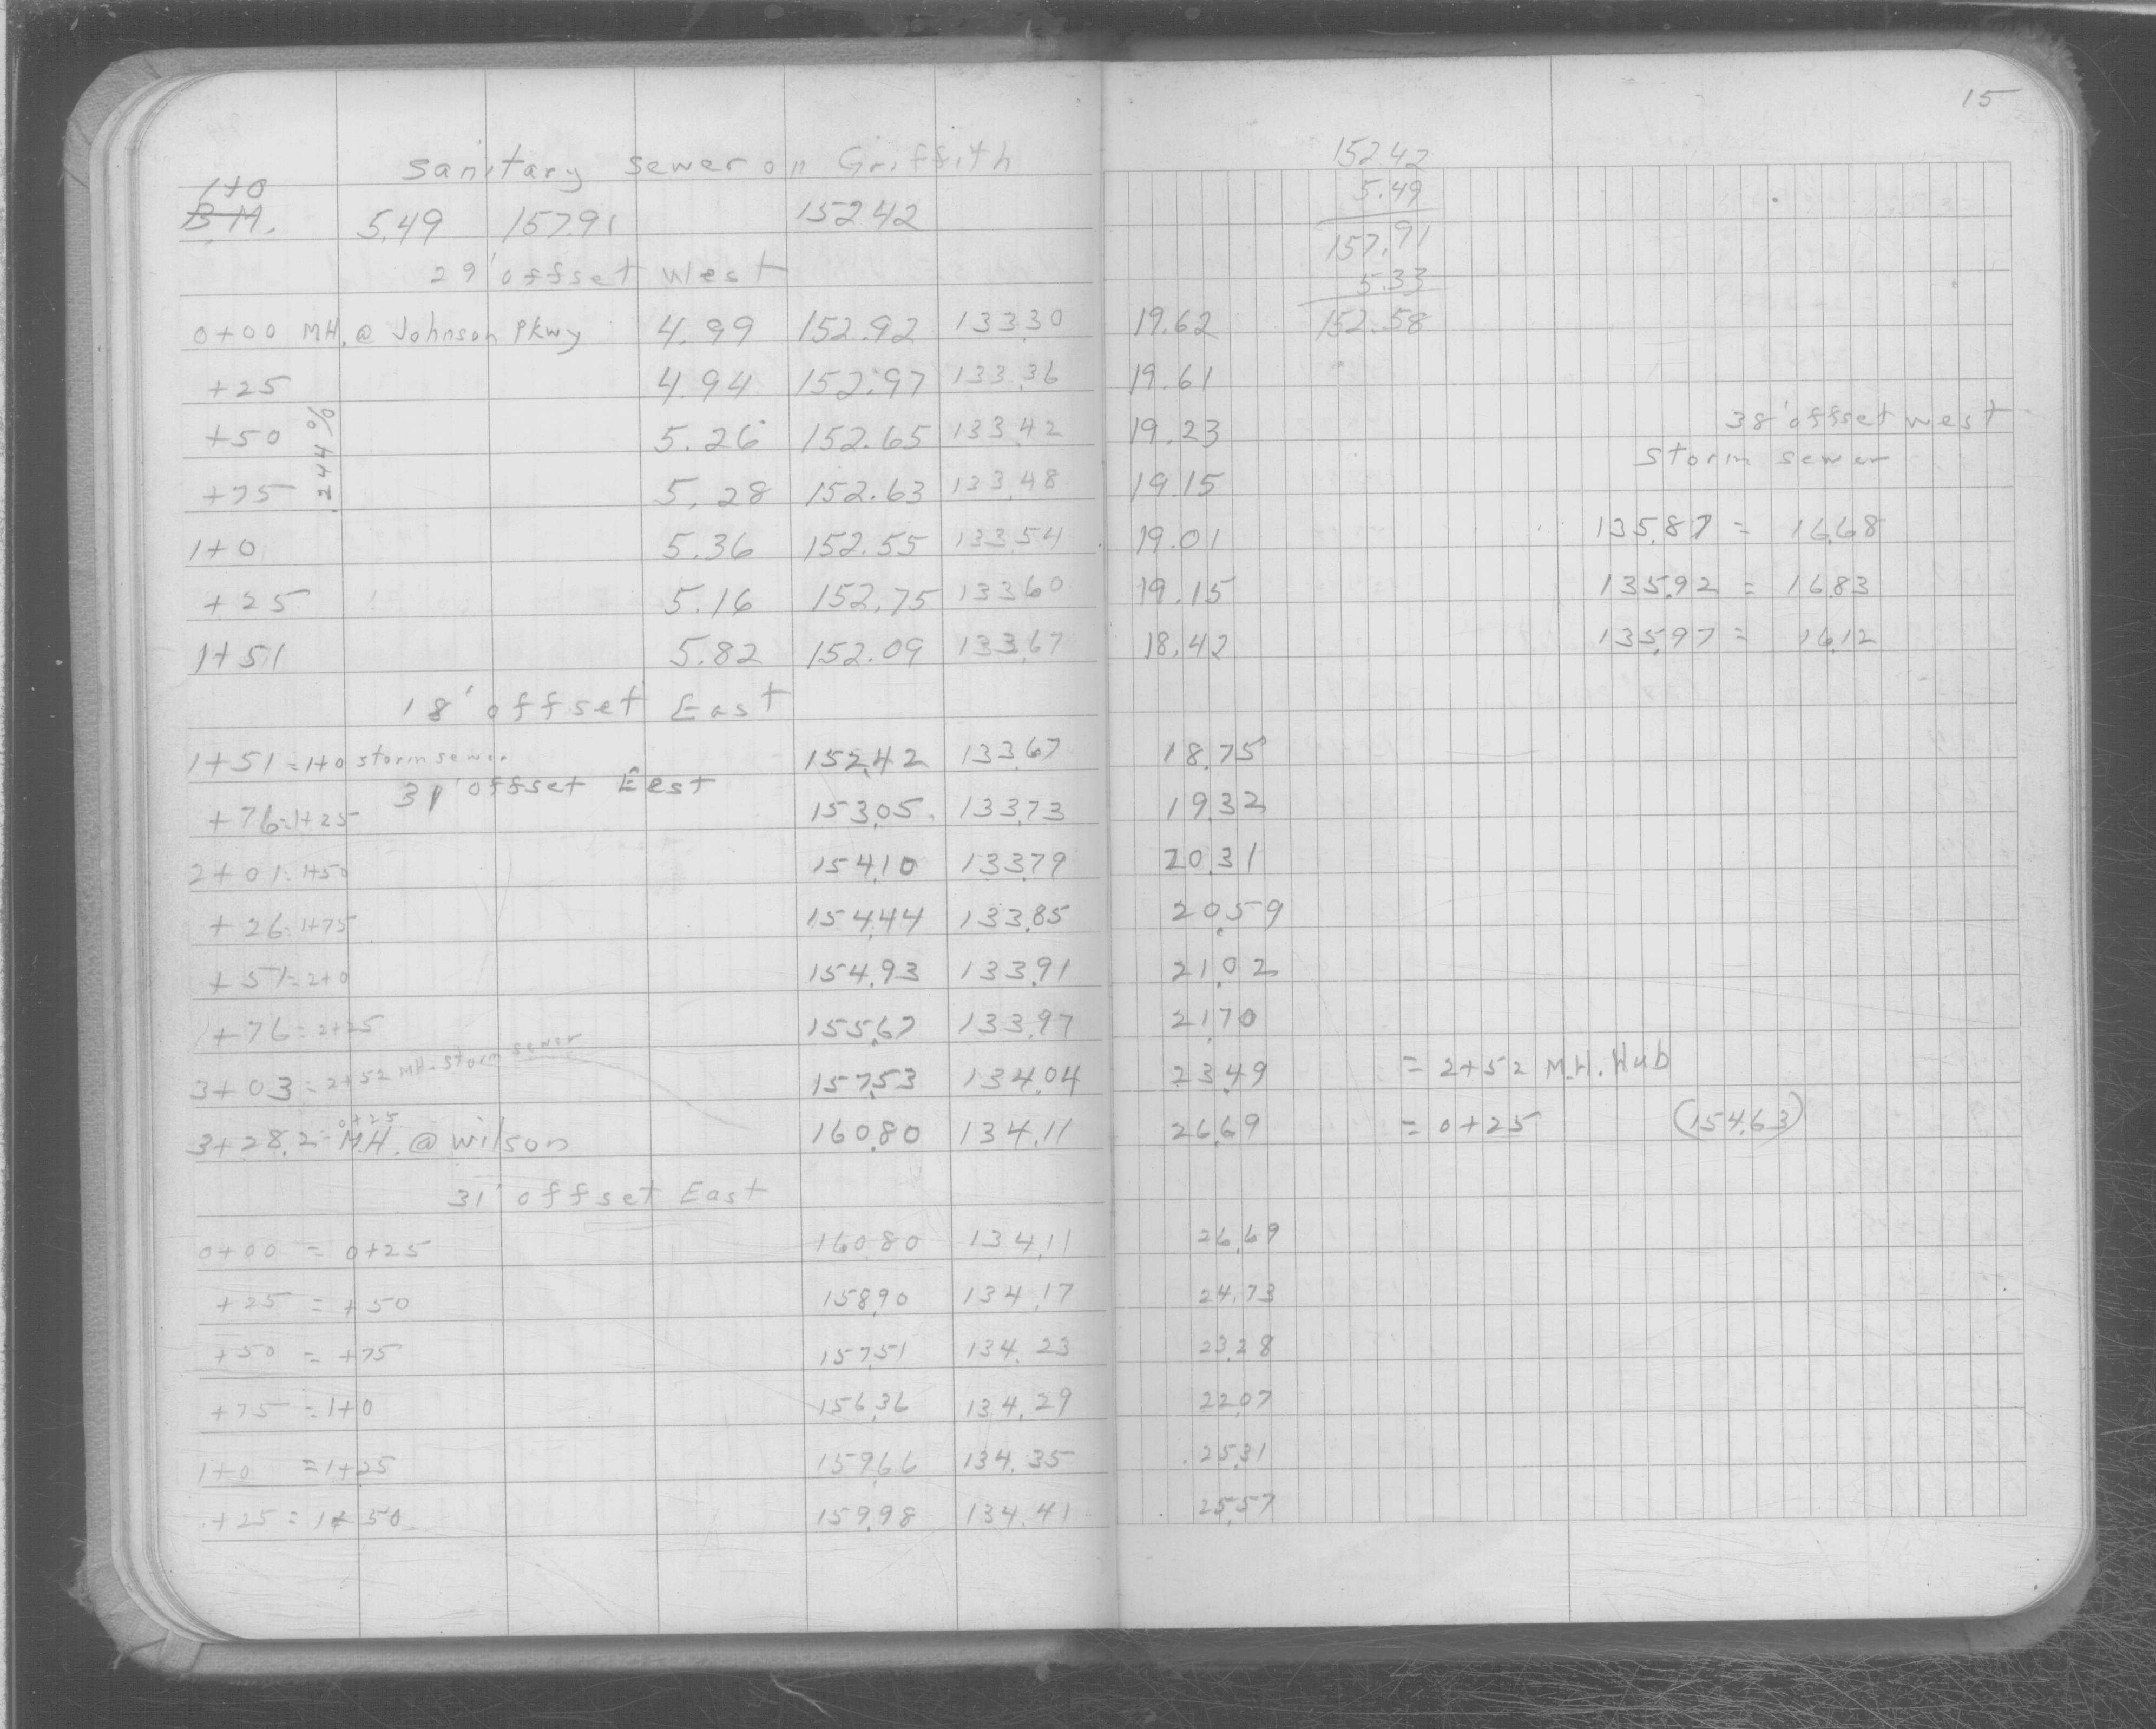 15
Sanitary Sewer on Griffith
1+0
B.M. 5.49 157.91 152.42
29' offset West
0+00 MH. @ Johnson Pkwy 4.99 152.92 133.30 19.62
+25 4.94 152.97 133.36 19.61
+50 5.26 152.65 133.42 19.23
+75 5.28 152.63 133.48 19.15
1+0 5.36 152.55 133.54 19.01
+25 5.16 152.75 133.60 19.15
1+51 5.82 152.09 133.67 18.42
.244%
18' offset East
1+51 = 1+0 storm sewer 152.42 133.67 18.75
31' offset East
+76 = 1+25 153.05 133.73 19.32
2+01 = 1+50 154.10 133.79 20.31
+26 = 1+75 154.44 133.85 20.59
+51 = 2+0 154.93 133.91 21.02
+76 = 2+25 155.67 133.97 21.70
3+03 = 2+52 MH. Storm sewer 157.53 134.04 23.49 = 2+52 M.H. Hub
0+25
3+28.2 = M.H. @ Wilson 160.80 134.11 26.69 = 0+25 (154.63)
31' offset East
0+00 = 0+25 160.80 134.11 26.69
+25 = +50 158.90 134.17 24.73
+50 = +75 157.51 134.23 23.28
+75 = 1+0 156.36 134.29 22.07
1+0 = 1+25 159.66 134.35 25.31
+25 = 1+50 159.98 134.41 25.57
152.42
5.49
157.91
5.33
152.58
38' offset west
storm sewer
135.87 = 16.68
135.92 = 16.83
135.97 = 16.12